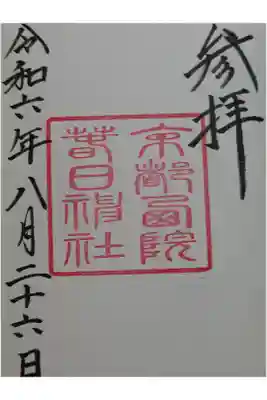 参拝
京都西院
春日神社
令和六年八月二十六日